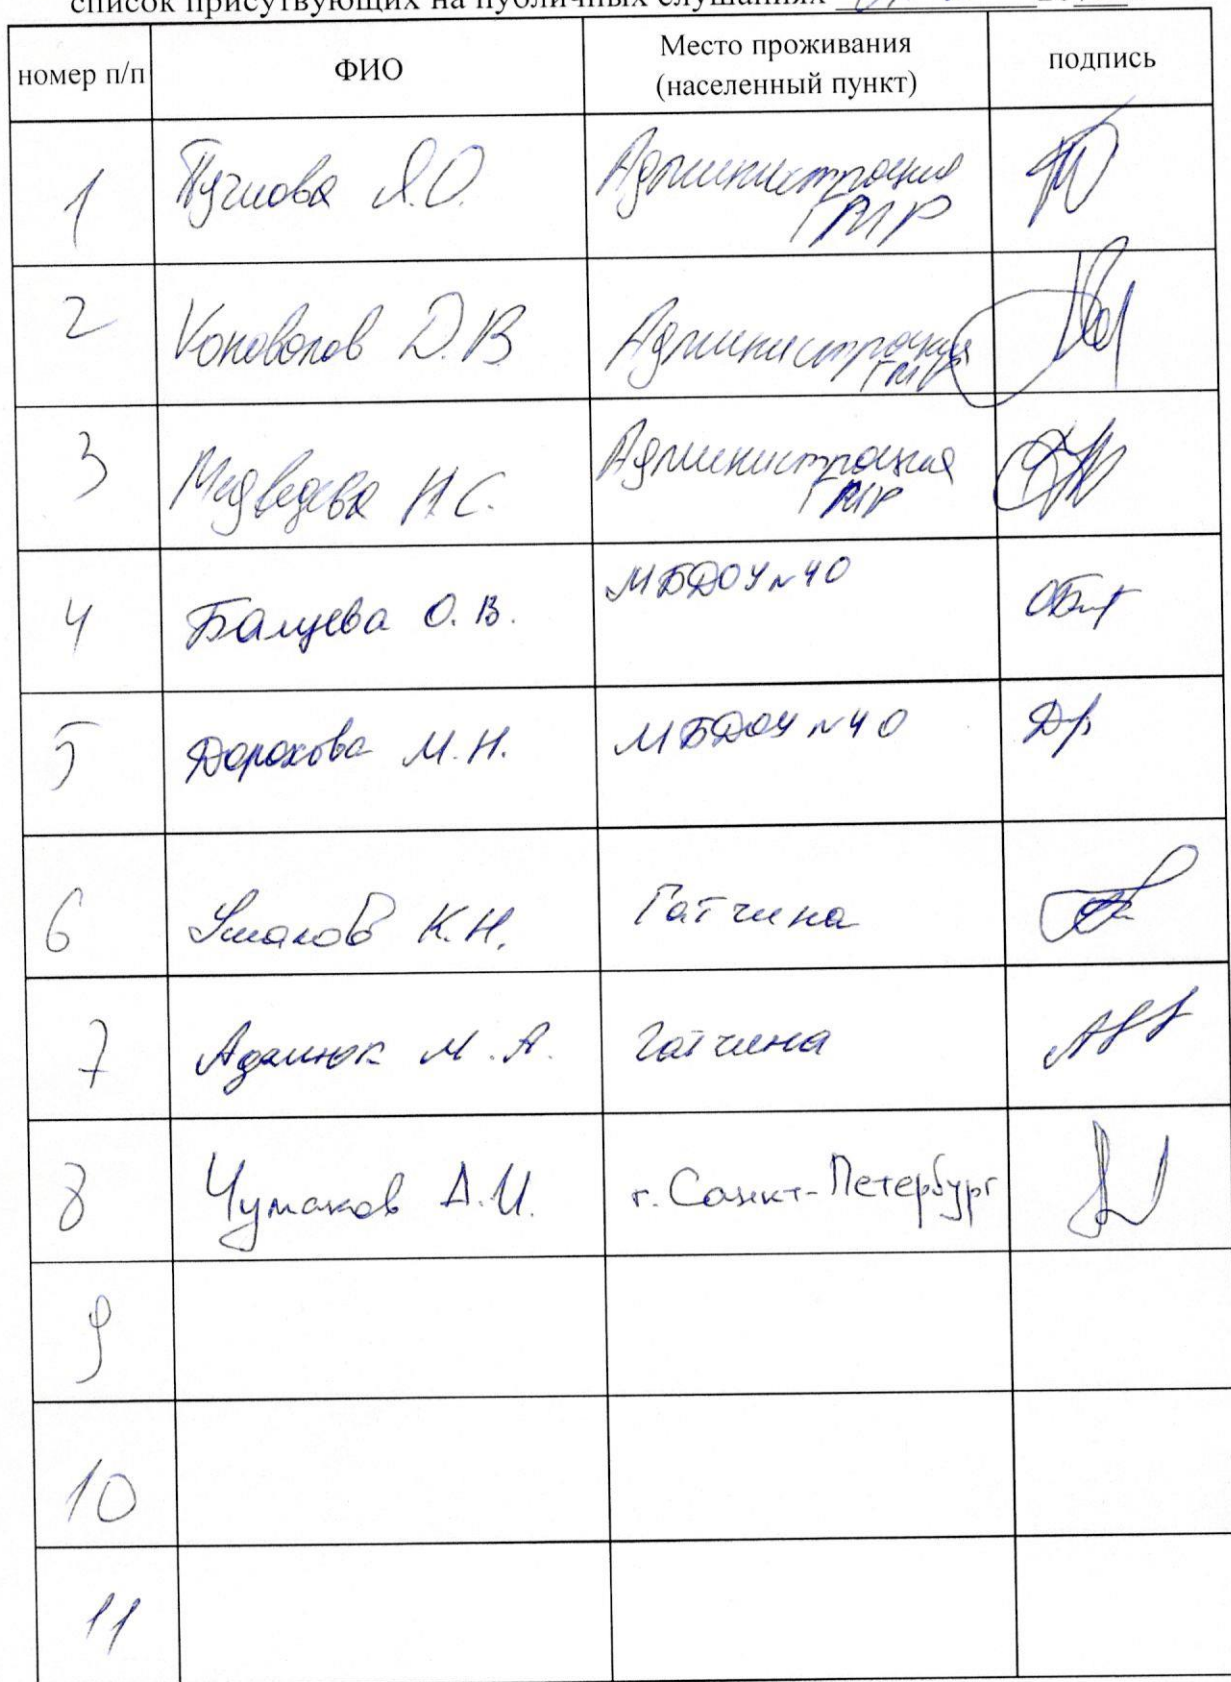 список присутвующих на публичных слушаниях
номер п/п ФИО Место проживания (населенный пункт) подпись
1 Пучкова Я.О. Администрация ГМР
2 Коновалов Д.В Администрация ГМР
3 Медведева Н.С. Администрация ГМР
4 О.В. МБДОУ N 40
5 Дорохова М.Н. МБДОУ N 40
6 Ушаков К.Н. Гатчина
7 Адамюк М.А. Гатчина
8 Чумаков А.И. г. Санкт-Петербург
9
10
11